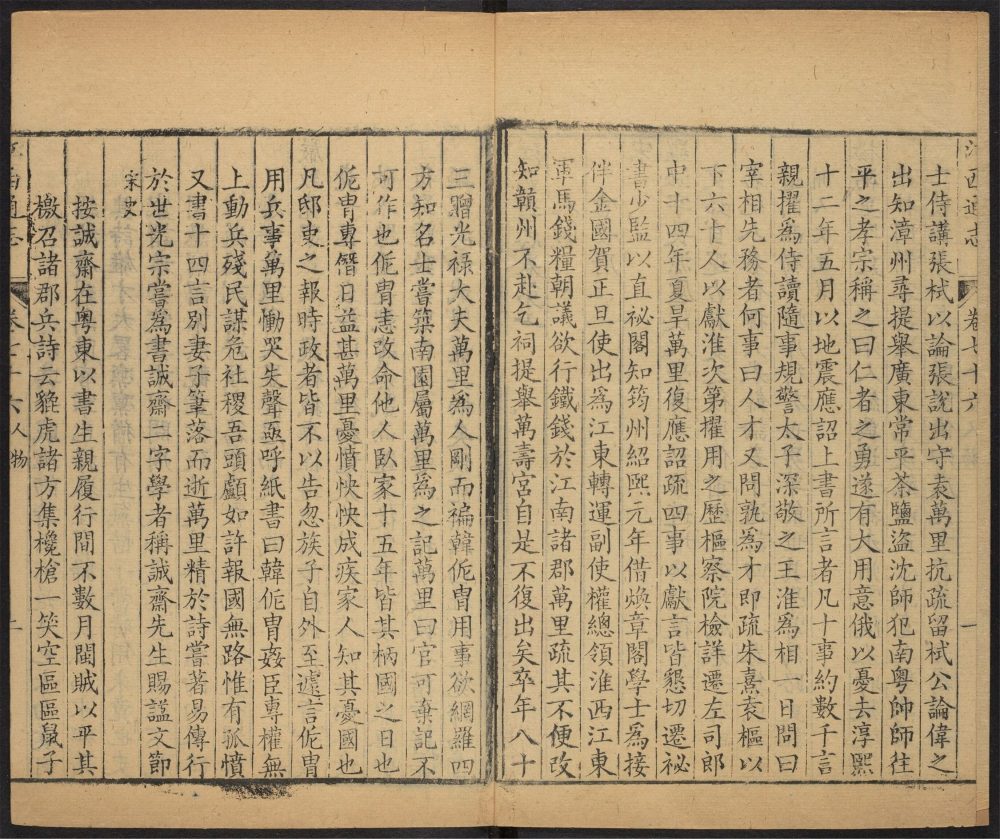 士侍講張栻以論張說出守袁萬里抗疏留栻公論偉之
出知漳州尋提舉廣東常平茶鹽盜沈師犯南粵帥師往
平之孝宗稱之曰仁者之勇遂有大用意俄以憂去淳熙
十二年五月以地震應詔上書所言者凡十事約數千言
親擢爲侍讀隨事規警太子深敬之王淮爲相一日問曰
宰相先務者何事曰人才又問孰為才即疏朱熹袁樞以
下六十人以獻淮次第擢用之歷樞察院檢詳遷左司郎
中十四年夏旱萬里復應詔疏四事以獻言皆懇切遷祕
書少監以直祕閣知筠州紹熙元年借煥章閣學士爲接
伴金國賀正旦使出爲江東轉運副使權總領淮西江東
軍馬錢糧朝議欲行鐵錢於江南諸郡萬里疏其不便改
知贑州不赴乞祠提舉萬壽宮自是不復出矣卒年八十
三贈光祿大夫萬里爲人剛而褊韓侂胄用事欲網羅四
方知名士嘗築南園屬萬里為之記萬里曰官可棄記不
可作也侂胄恚改命他人臥家十五年皆其柄國之日也
侂胄專僭日益甚萬里憂憤怏怏成疾家人知其憂國也
凡邸吏之報時政者皆不以告忽族子自外至遽言侂胄
用兵事萬里慟哭失聲亟呼紙書曰韓侂胄姦臣專權無
上動兵殘民謀危社稷吾頭顱如許報國無路惟有孤憤
又書十四言別妻子筆落而逝萬里精於詩嘗著易傳行
於世光宗嘗爲書誠齋二字學者稱誠齋先生賜謚文節
宋史
按誠齋在粵東以書生親履行間不數月閩賊以平其
檄召諸郡兵詩云貔虎諸方集欃槍一笑空區區鼠子
江西通志 卷七十六 一
卷七十六 人物 一